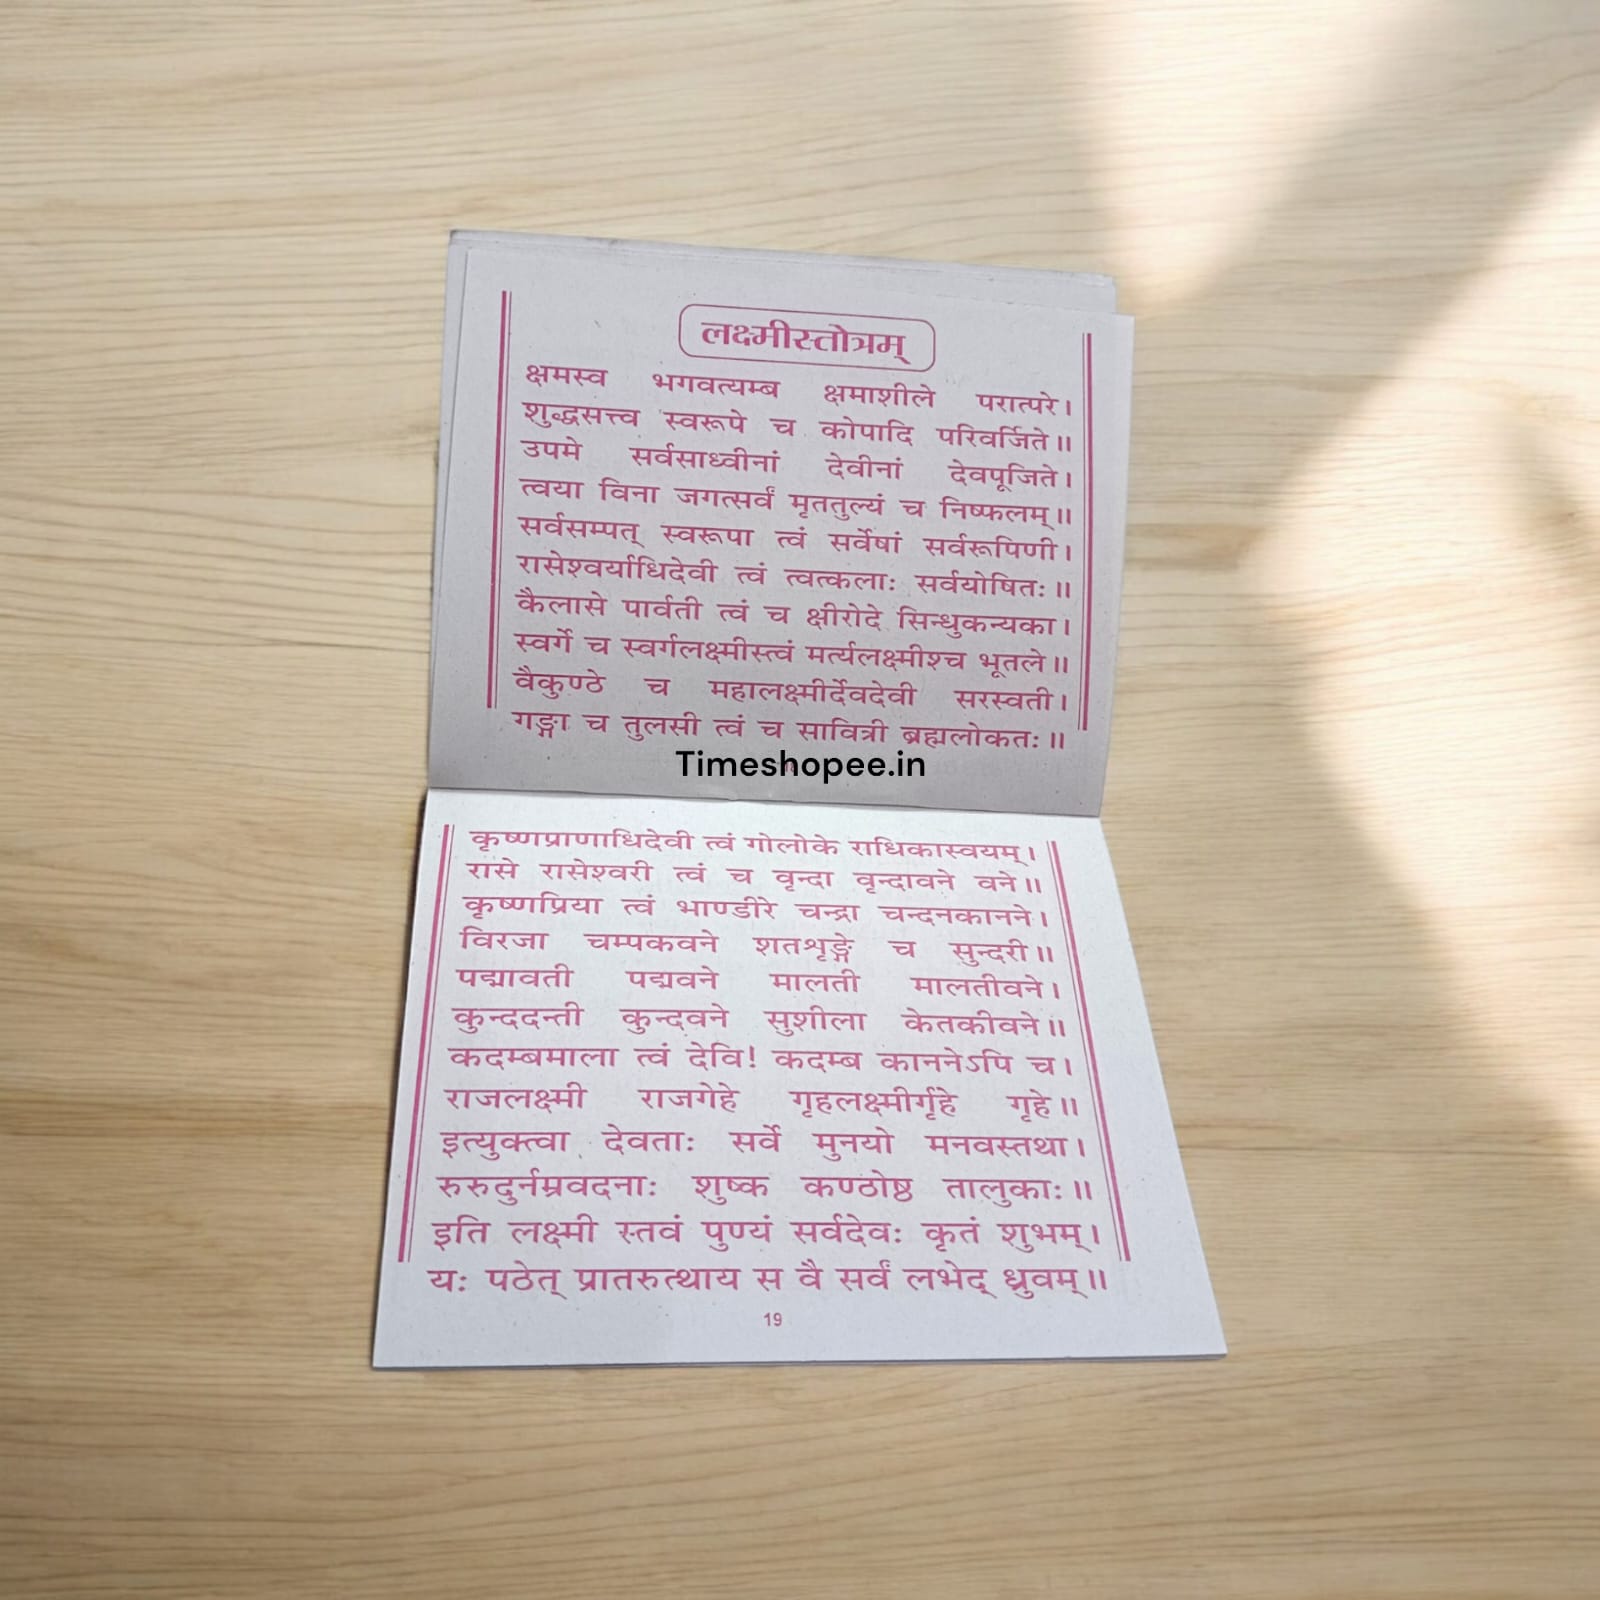 लक्ष्मीस्तोत्रम्
क्षमस्व भगवत्यम्ब क्षमाशीले परात्परे।
शुद्धसत्त्व स्वरूपे च कोपादि परिवर्जिते॥
उपमे सर्वसाध्वीनां देवीनां देवपूजिते।
त्वया विना जगत्सर्वं मृततुल्यं च निष्फलम्॥
सर्वसम्पत् स्वरूपा त्वं सर्वेषां सर्वरूपिणी।
रासेश्वर्याधिदेवी त्वं त्वत्कलाः सर्वयोषितः॥
कैलासे पार्वती त्वं च क्षीरोदे सिन्धुकन्यका।
स्वर्गे च स्वर्गलक्ष्मीस्त्वं मर्त्यलक्ष्मीश्च भूतले॥
वैकुण्ठे च महालक्ष्मीर्देवदेवी सरस्वती।
गङ्गा च तुलसी त्वं च सावित्री ब्रह्मलोकतः॥
Timeshopee.in
कृष्णप्राणाधिदेवी त्वं गोलोके राधिकास्वयम्।
रासे रासेश्वरी त्वं च वृन्दा वृन्दावने वने॥
कृष्णप्रिया त्वं भाण्डीरे चन्द्रा चन्दनकानने।
विरजा चम्पकवने शतशृङ्गे च सुन्दरी॥
पद्मावती पद्मवने मालती मालतीवने।
कुन्ददन्ती कुन्दवने सुशीला केतकीवने॥
कदम्बमाला त्वं देवि! कदम्ब काननेऽपि च।
राजलक्ष्मी राजगेहे गृहलक्ष्मीर्गृहे गृहे॥
इत्युक्त्वा देवताः सर्वे मुनयो मनवस्तथा।
रुरुदुर्नम्रवदनाः शुष्क कण्ठोष्ठ तालुकाः॥
इति लक्ष्मी स्तवं पुण्यं सर्वदेवः कृतं शुभम्।
यः पठेत् प्रातरुत्थाय स वै सर्वं लभेद् ध्रुवम्॥
19